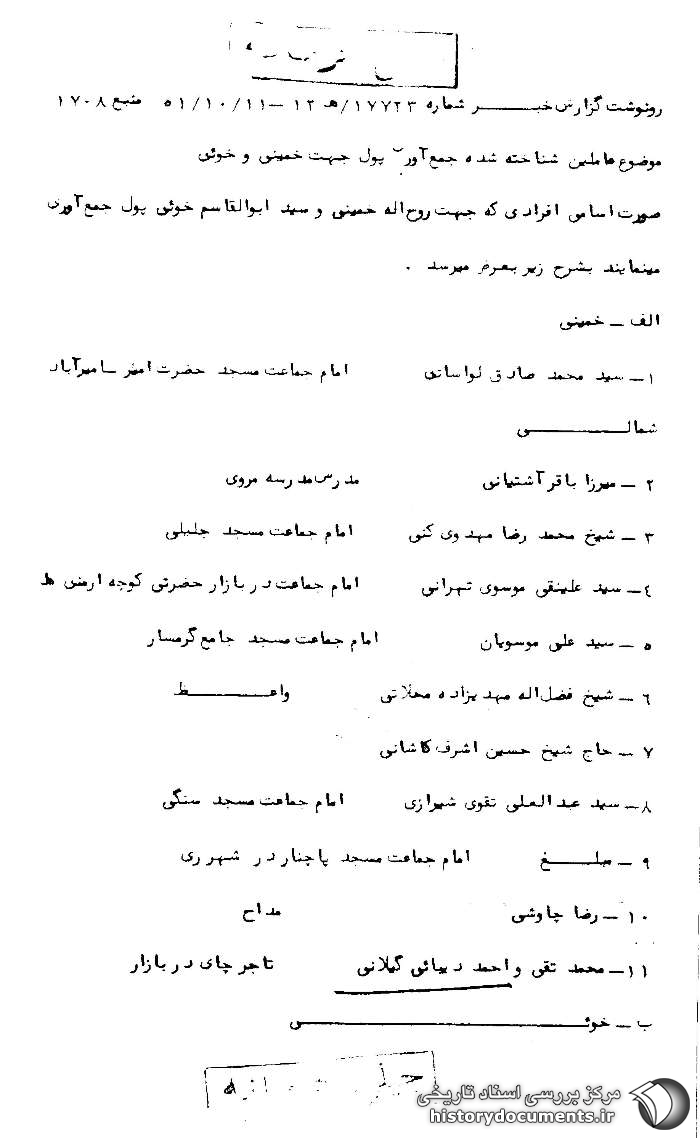 رونوشت گزارش خبـــــر شماره ۱۷۷۲۳/هـ ۱۲ -۵۱/۱۰/۱۱ منبع ۱۷۰۸
موضوع عاملین شناخته شده جمع‌آور پول جهت خمینی و خوئی
صورت اسامی افرادی که جهت روح‌اله خمینی و سید ابوالقاسم خوئی پول جمع‌آوری
مینمایند بشرح زیر بعرض میرسد .
الف - خمینی
۱- سید محمد صادق لواسانی امام جماعت مسجد حضرت امیر - امیرآباد
شمالـــــــی
۲ - میرزا باقر آشتیانی مدرس مدرسه مروی
۳ - شیخ محمد رضا مهدوی کنی امام جماعت مسجد جلیلی
۴- سید علینقی موسوی تهرانی امام جماعت در بازار حضرتی کوچه ارض ها
۵ - سید علی موسویان امام جماعت مسجد جامع گرمسار
۶ - شیخ فضل‌اله مهدیزاده محلاتی واعـــــــظ
۷ - حاج شیخ حسین اشرف کاشانی
۸- سید عبدالعلی تقوی شیرازی امام جماعت مسجد سنگی
۹ - مبلـــــغ امام جماعت مسجد پاچنار در شهرری
۱۰ - رضا چاوشی مداح
۱۱- محمد تقی و احمد دیبائی گیلانی تاجر چای در بازار
ب - خوئـــــــــــــــی
مرکز بررسی اسناد تاریخی
historydocuments.ir